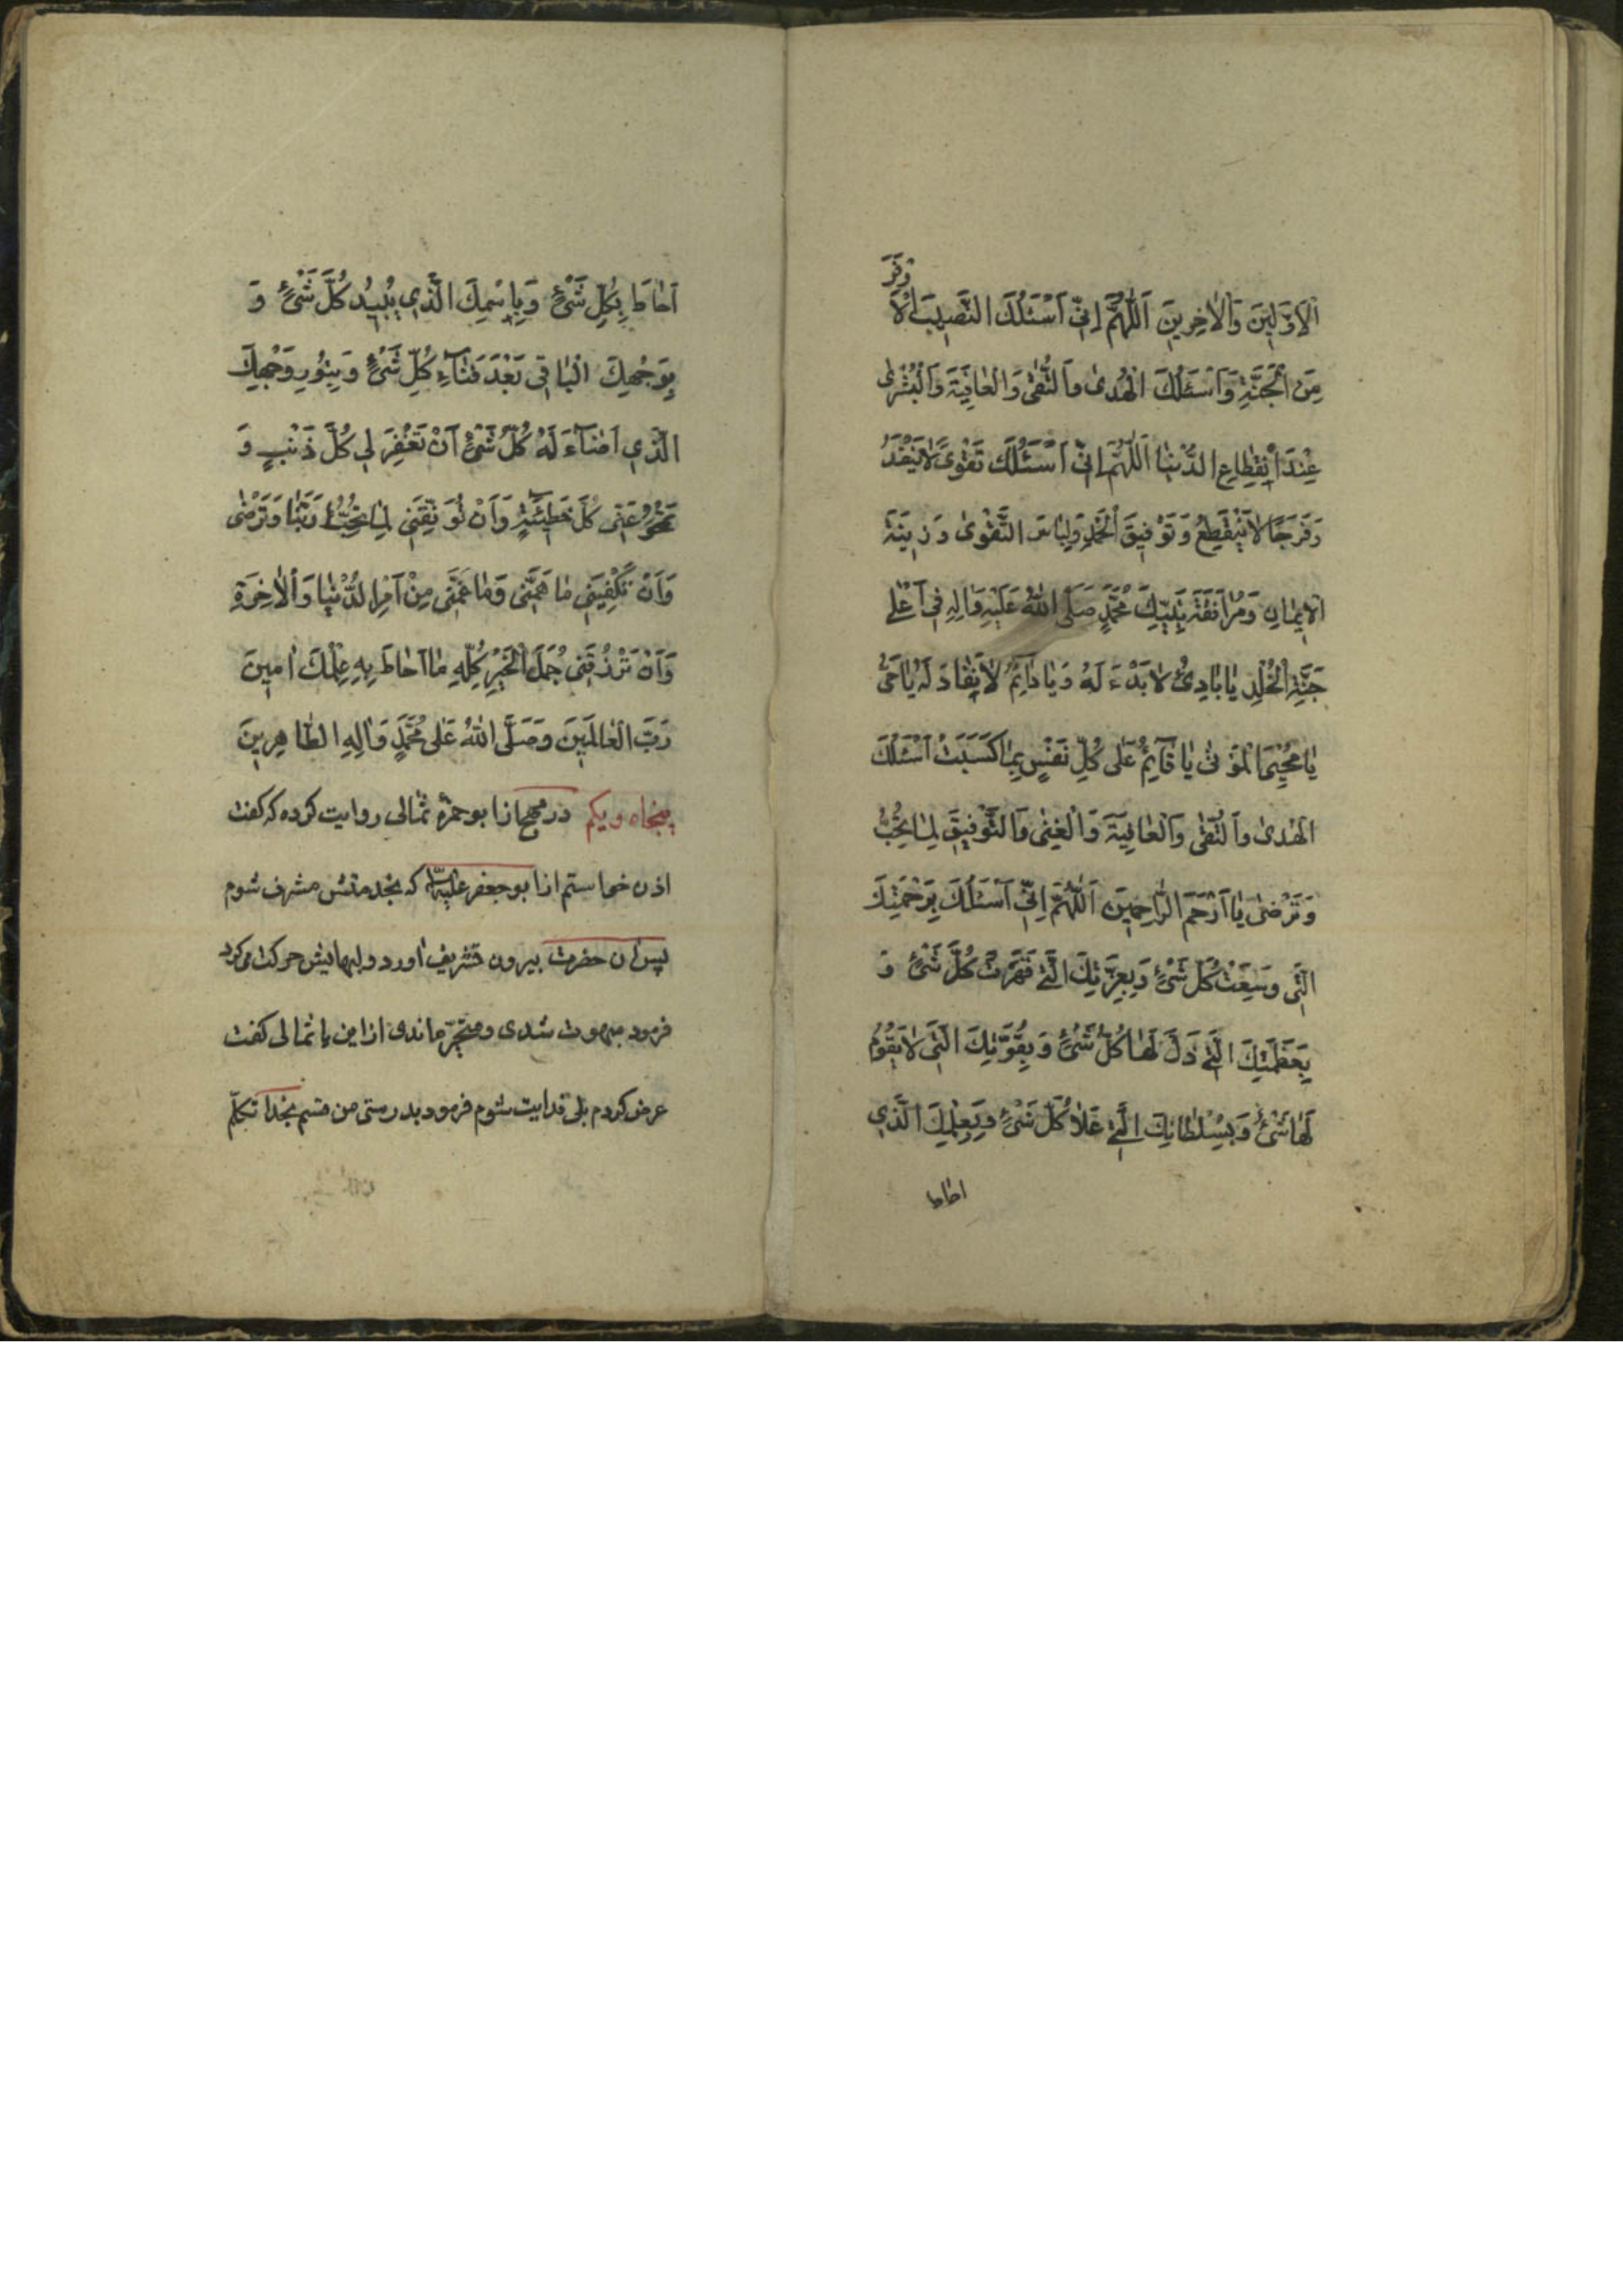 اَلْاَوَّلِينَ وَالْاٰخِرِينَ اَللّٰهُمَّ اِنّي اَسْئَلُكَ النَّصِيبَ الْاَوْفَرَ
مِنَ الْجَنَّةِ وَاَسْئَلُكَ الْهُدىٰ وَالتُّقىٰ وَالْعٰافِيَةَ وَالْبُشْرىٰ
عِنْدَ انْقِطٰاعِ الدُّنْيٰا اَللّٰهُمَّ اِنّي اَسْئَلُكَ تَقْوىً لاٰ يَنْفَدُ
وَفَرَجًا لاٰ يَنْقَطِعُ وَتَوْفِيقَ الْحَمْدِ وَلِبٰاسَ التَّقْوىٰ وَزِينَةَ
الْاِيمٰانِ وَمُرٰافَقَةَ نَبِيِّكَ مُحَمَّدٍ صَلَّى اللّٰهُ عَلَيْهِ وَاٰلِهِ فِي اَعْلىٰ
جَنَّةِ الْخُلْدِ يٰا بٰادِئُ لاٰ بَدْءَ لَهُ وَيٰا دٰائِمُ لاٰ نَفٰادَ لَهُ يٰا حَيُّ
يٰا مُحْيِيَ الْمَوْتىٰ يٰا قٰائِمُ عَلىٰ كُلِّ نَفْسٍ بِمٰا كَسَبَتْ اَسْئَلُكَ
الْهُدىٰ وَالتُّقىٰ وَالْعٰافِيَةَ وَالْغِنىٰ وَالتَّوْفِيقَ لِمٰا تُحِبُّ
وَتَرْضىٰ يٰا اَرْحَمَ الرّٰاحِمِينَ اَللّٰهُمَّ اِنّي اَسْئَلُكَ بِرَحْمَتِكَ
الَّتي وَسِعَتْ كُلَّ شَيْءٍ وَبِعِزَّتِكَ الَّتي قَهَرَتْ كُلَّ شَيْءٍ وَ
بِعَظَمَتِكَ الَّتي ذَلَّ لَهٰا كُلُّ شَيْءٍ وَبِقُوَّتِكَ الَّتي لاٰ يَقُومُ
لَهٰا شَيْءٌ وَبِسُلْطٰانِكَ الَّذي عَلاٰ كُلَّ شَيْءٍ وَبِعِلْمِكَ الَّذي
احاط
اَحٰاطَ بِكُلِّ شَيْءٍ وَبِاسْمِكَ الَّذي يُبِيدُ كُلَّ شَيْءٍ وَ
بِوَجْهِكَ الْبٰاقي بَعْدَ فَنٰاءِ كُلِّ شَيْءٍ وَبِنُورِ وَجْهِكَ
الَّذي اَضٰاءَ لَهُ كُلُّ شَيْءٍ اَنْ تَغْفِرَ لي كُلَّ ذَنْبٍ وَ
تَمْحُوَ عَنّي كُلَّ خَطِيئَةٍ وَاَنْ تُوَفِّقَني لِمٰا تُحِبُّ رَبَّنٰا وَتَرْضىٰ
وَاَنْ تَكْفِيَني مٰا هَمَّني وَمٰا غَمَّني مِنْ اَمْرِ الدُّنْيٰا وَالْاٰخِرَةِ
وَاَنْ تَرْزُقَني جُمَلَ الْخَيْرِ كُلِّهِ مٰا اَحٰاطَ بِهِ عِلْمُكَ اٰمِينَ
رَبَّ الْعٰالَمِينَ وَصَلَّى اللّٰهُ عَلىٰ مُحَمَّدٍ وَاٰلِهِ الطّٰاهِرِينَ
پنجاه ويكم در مهج از ابو حمزهٔ ثمالى روايت كرده كه گفت
اذن خواستم از ابو جعفر عليه السّلام كه بخدمتش مشرف شوم
پس آن حضرت بيرون تشريف اورد و لبهايش حركت ميكرد
فرمود مبهوت شدى و متحيّر ماندى از اين يا ثمالى گفت
عرض كردم بلى فدايت شوم فرمود بدرستى من قسم بخدا تكلّم